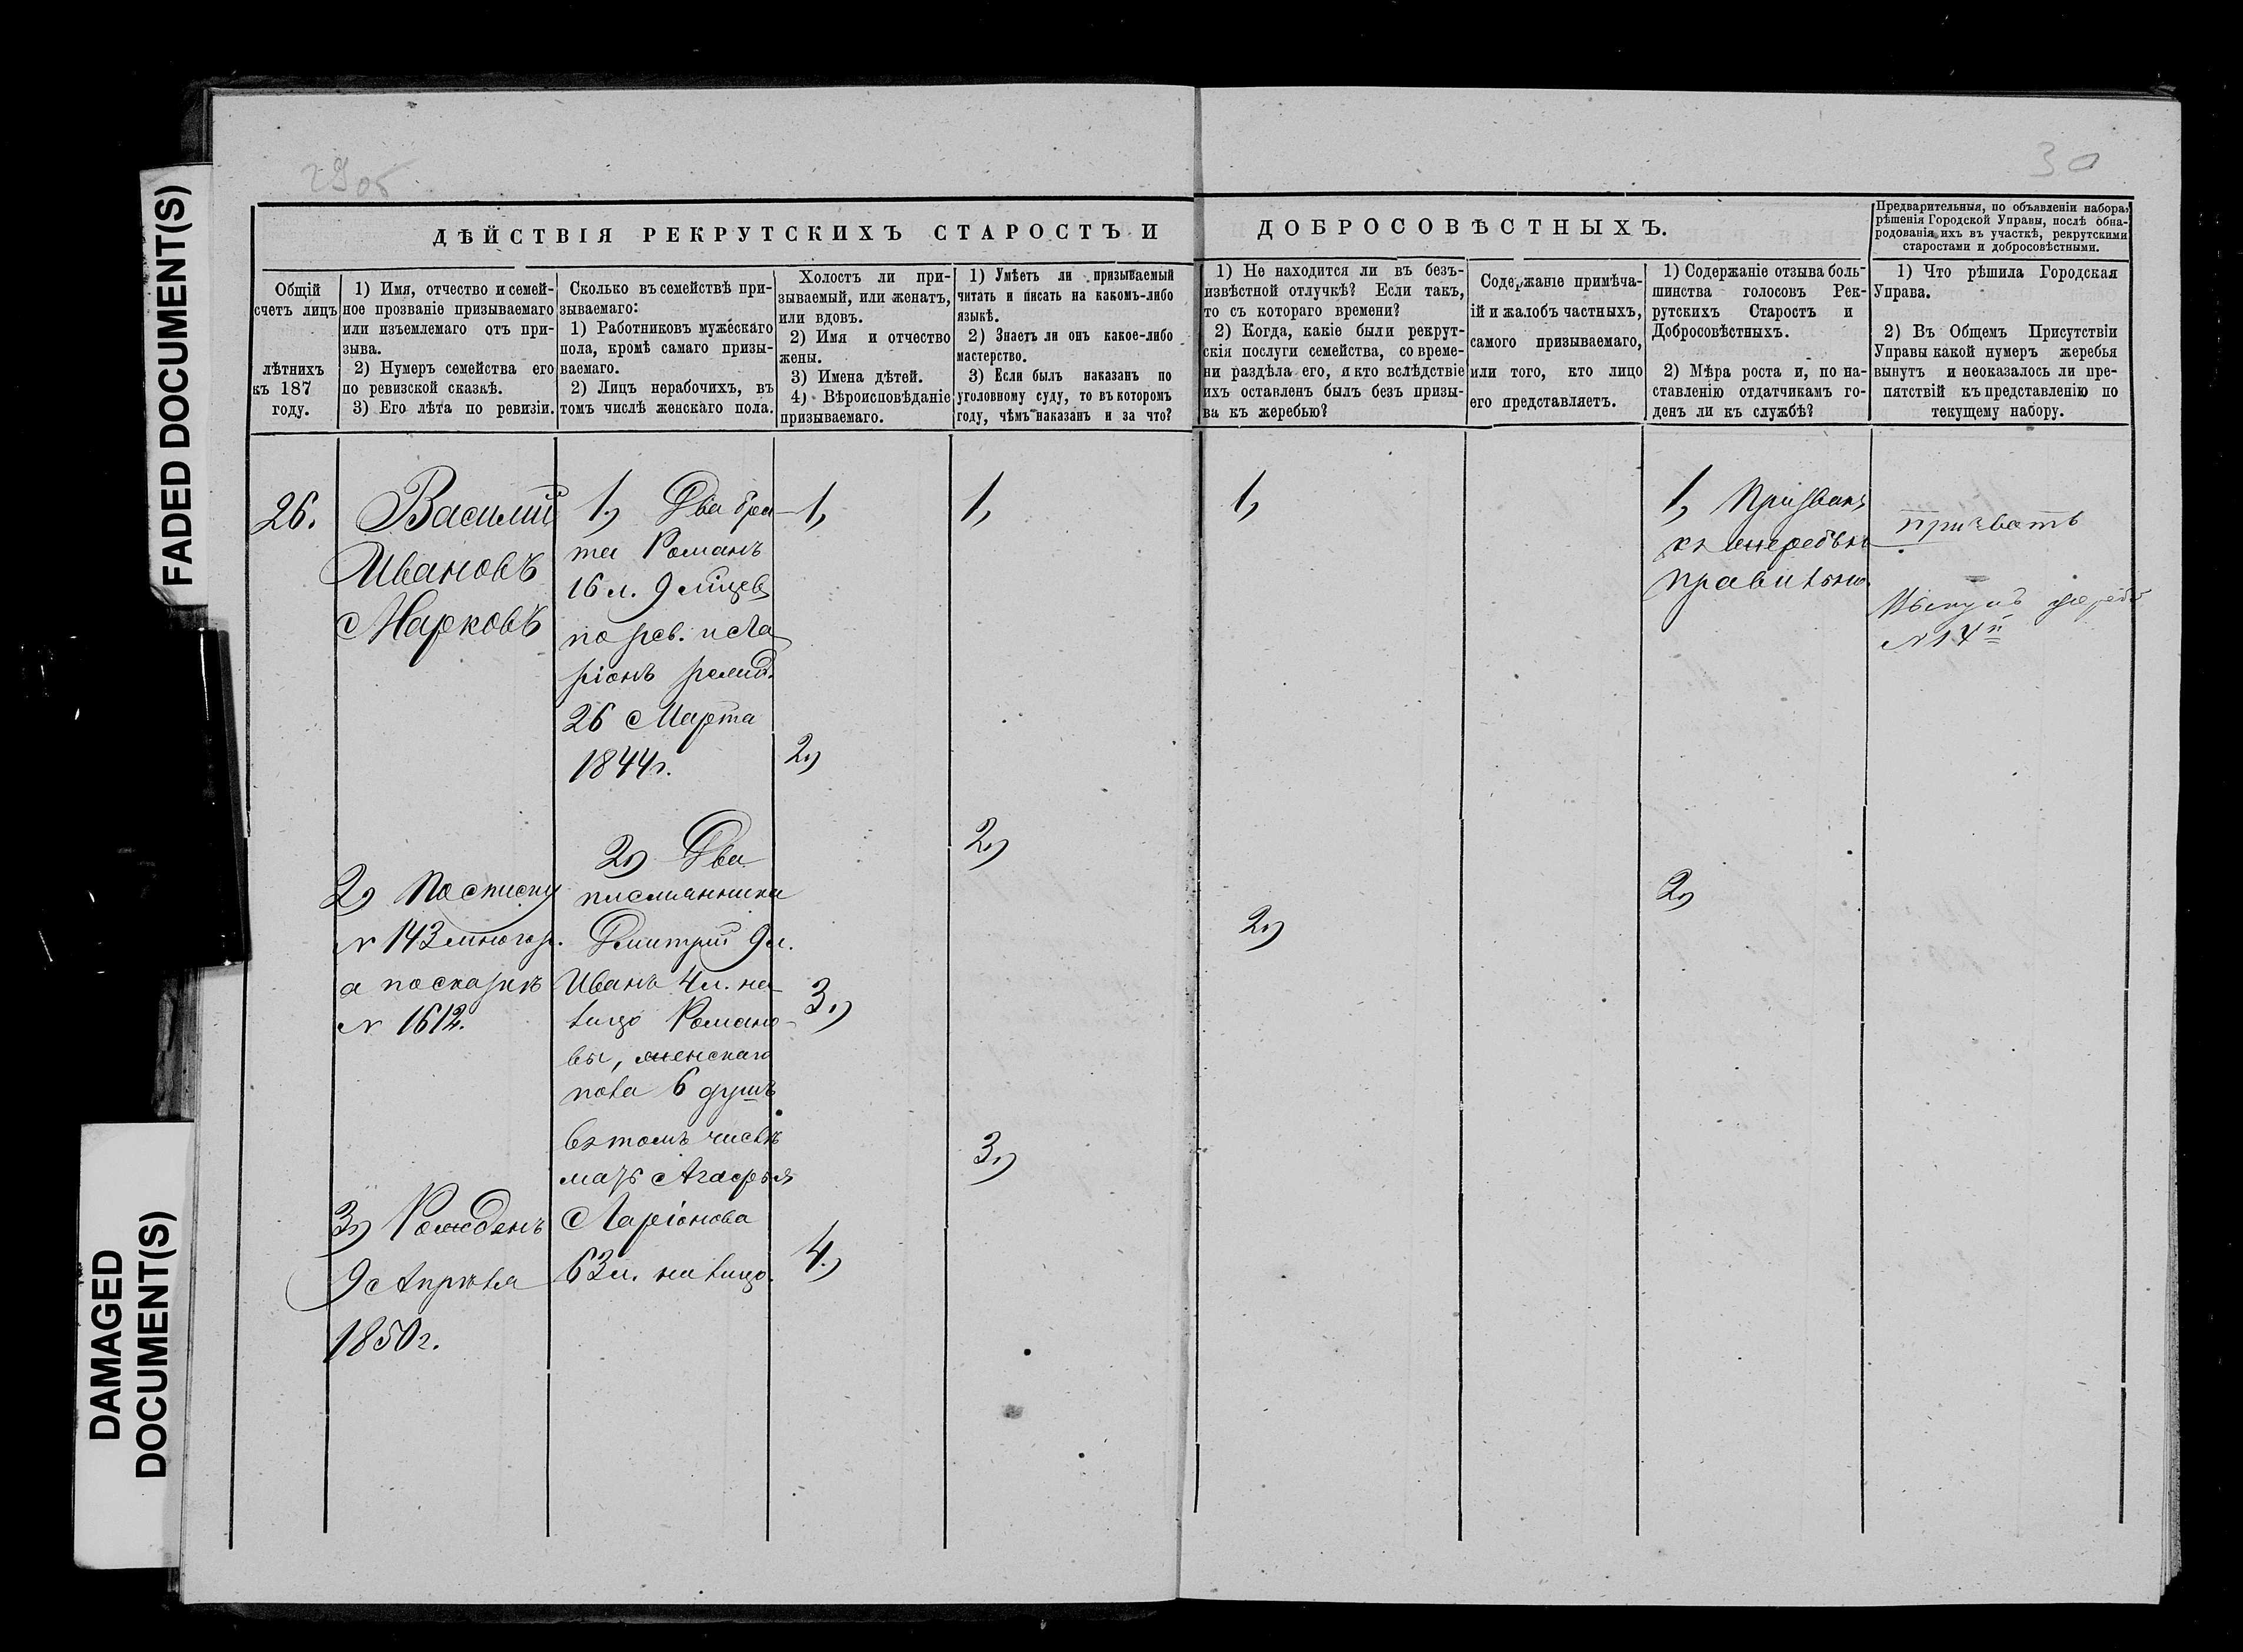 FADED DOCUMENT(S)
DAMAGED
DOCUMENT(S)
29об
30
ДѢЙСТВІЯ РЕКРУТСКИХЪ СТАРОСТЪ И ДОБРОСОВѢСТНЫХЪ.
Предварительныя, по объявленіи набора,
рѣшенія Городской Управы, послѣ обна-
родованія ихъ въ участкѣ, рекрутскими
старостами и добросовѣстными.
Общій
счетъ лицъ
лѣтнихъ
къ 187
году.
1) Имя, отчество и семей-
ное прозваніе призываемаго
или изъемлемаго отъ при-
зыва.
2) Нумеръ семейства его
по ревизской сказкѣ.
3) Его лѣта по ревизіи.
Сколько въ семействѣ при-
зываемаго:
1) Работниковъ мужескаго
пола, кромѣ самаго призы-
ваемаго.
2) Лицъ нерабочихъ, въ
томъ числѣ женскаго пола.
Холостъ ли при-
зываемый, или женатъ,
или вдовъ.
2) Имя и отчество
жены.
3) Имена дѣтей.
4) Вѣроисповѣданіе
призываемаго.
1) Умѣетъ ли призываемый
читать и писать на какомъ-либо
языкѣ.
2) Знаетъ ли онъ какое-либо
мастерство.
3) Если былъ наказанъ по
уголовному суду, то въ которомъ
году, чѣмъ наказанъ и за что?
1) Не находится ли въ безъ-
извѣстной отлучкѣ? Если такъ,
то съ котораго времени?
2) Когда, какіе были рекрут-
скія послуги семейства, со време-
ни раздѣла его, я кто вслѣдствіе
ихъ оставленъ былъ безъ призы-
ва къ жеребью?
Содержаніе примѣча-
ій и жалобъ частныхъ,
самого призываемаго,
или того, кто лицо
его представляетъ.
1) Содержаніе отзыва боль-
шинства голосовъ Рек-
рутскихъ Старостъ и
Добросовѣстныхъ.
2) Мѣра роста и, по на-
ставленію отдатчикамъ го-
денъ ли къ службѣ?
1) Что рѣшила Городская
Управа.
2) Въ Общемъ Присутствіи
Управы какой нумеръ жеребья
вынутъ и неоказалось ли пре-
пятствій къ представленію по
текущему набору.
26.
Василій
Ивановъ
Марковъ
2) По списку
№ 143 многор.
а по сказкѣ
№ 1612.
3) Рожденъ
9 Апрѣля
1850 г.
1, Два бра-
та Романъ
16 л. 9 мѣцев
по рев. и Ла
ріонъ рожд.
26 Марта
1844 г.
2) Два
племянника
Дмитрій 9 л.
Иванъ 4 л. на-
лицо Романо-
вы, женскаго
пола 6 душъ
въ томъ числѣ
мать Агафья
Ларіонова
63 л. на лицо.
1,
2,)
3,)
4,)
1,
2,)
3,)
1,
2,)
1, Призванъ
къ жеребью
правильно
2)
Призвать
Вынулъ жереб
№ 14й